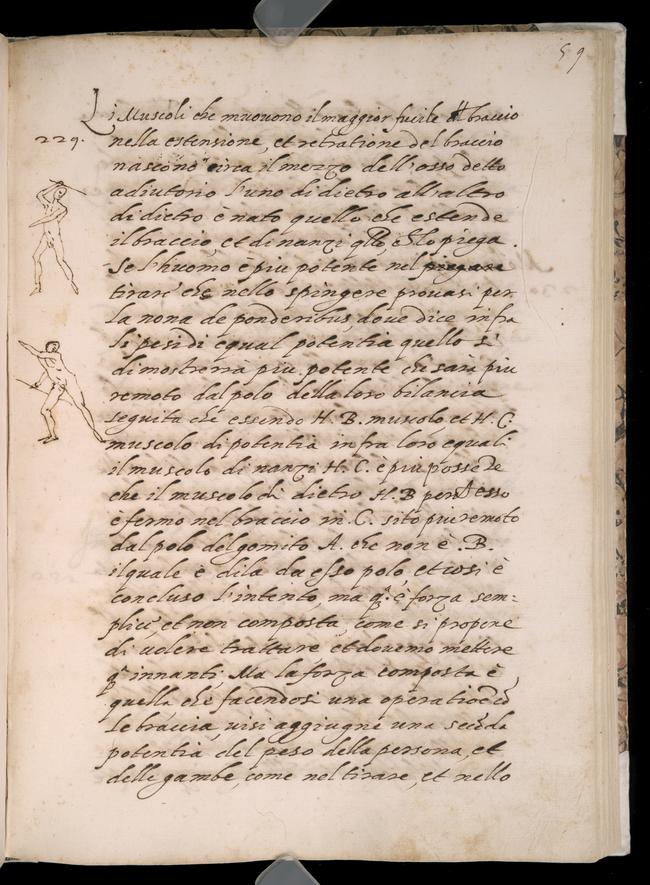 59
Li Muscoli che muovono il maggior fucile del braccio
229.
nella estensione, et retratione del braccio
nascono circa il mezzo dell'osso detto
adiutorio l'uno di dietro all'altro
di dietro è nato quello che estende
il braccio, et dinanzi qllo, ch lo piega.
Se l'huomo è piu potente nel
tirare che nello spingere provasi per
la nona de ponderibus, dove dice infra
li pesi di equal potentia quello si
dimostrerra piu potente che sara piu
remoto dal polo della loro bilancia
seguita che essendo H. B. muscolo, et H. C.
muscolo di potentia infra loro equali
il muscolo dinanzi H. C. è piu possete
che il muscolo di dietro H. B
è fermo nel braccio in. C. sito piu remoto
dal polo del gomito A. che non è .B.
il quale è di la da esso polo, et cosi è
concluso l'intento, ma q. è forza sem=
plice, et non composta, come si propone
di volere trattare et dovemo mettere
q innanti, Ma la forza composta è
quella che facendosi una operatioe cō
le braccia, visi aggiugne una secōda
potentia del peso della persona, et
delle gambe, come nel tirare, et nello